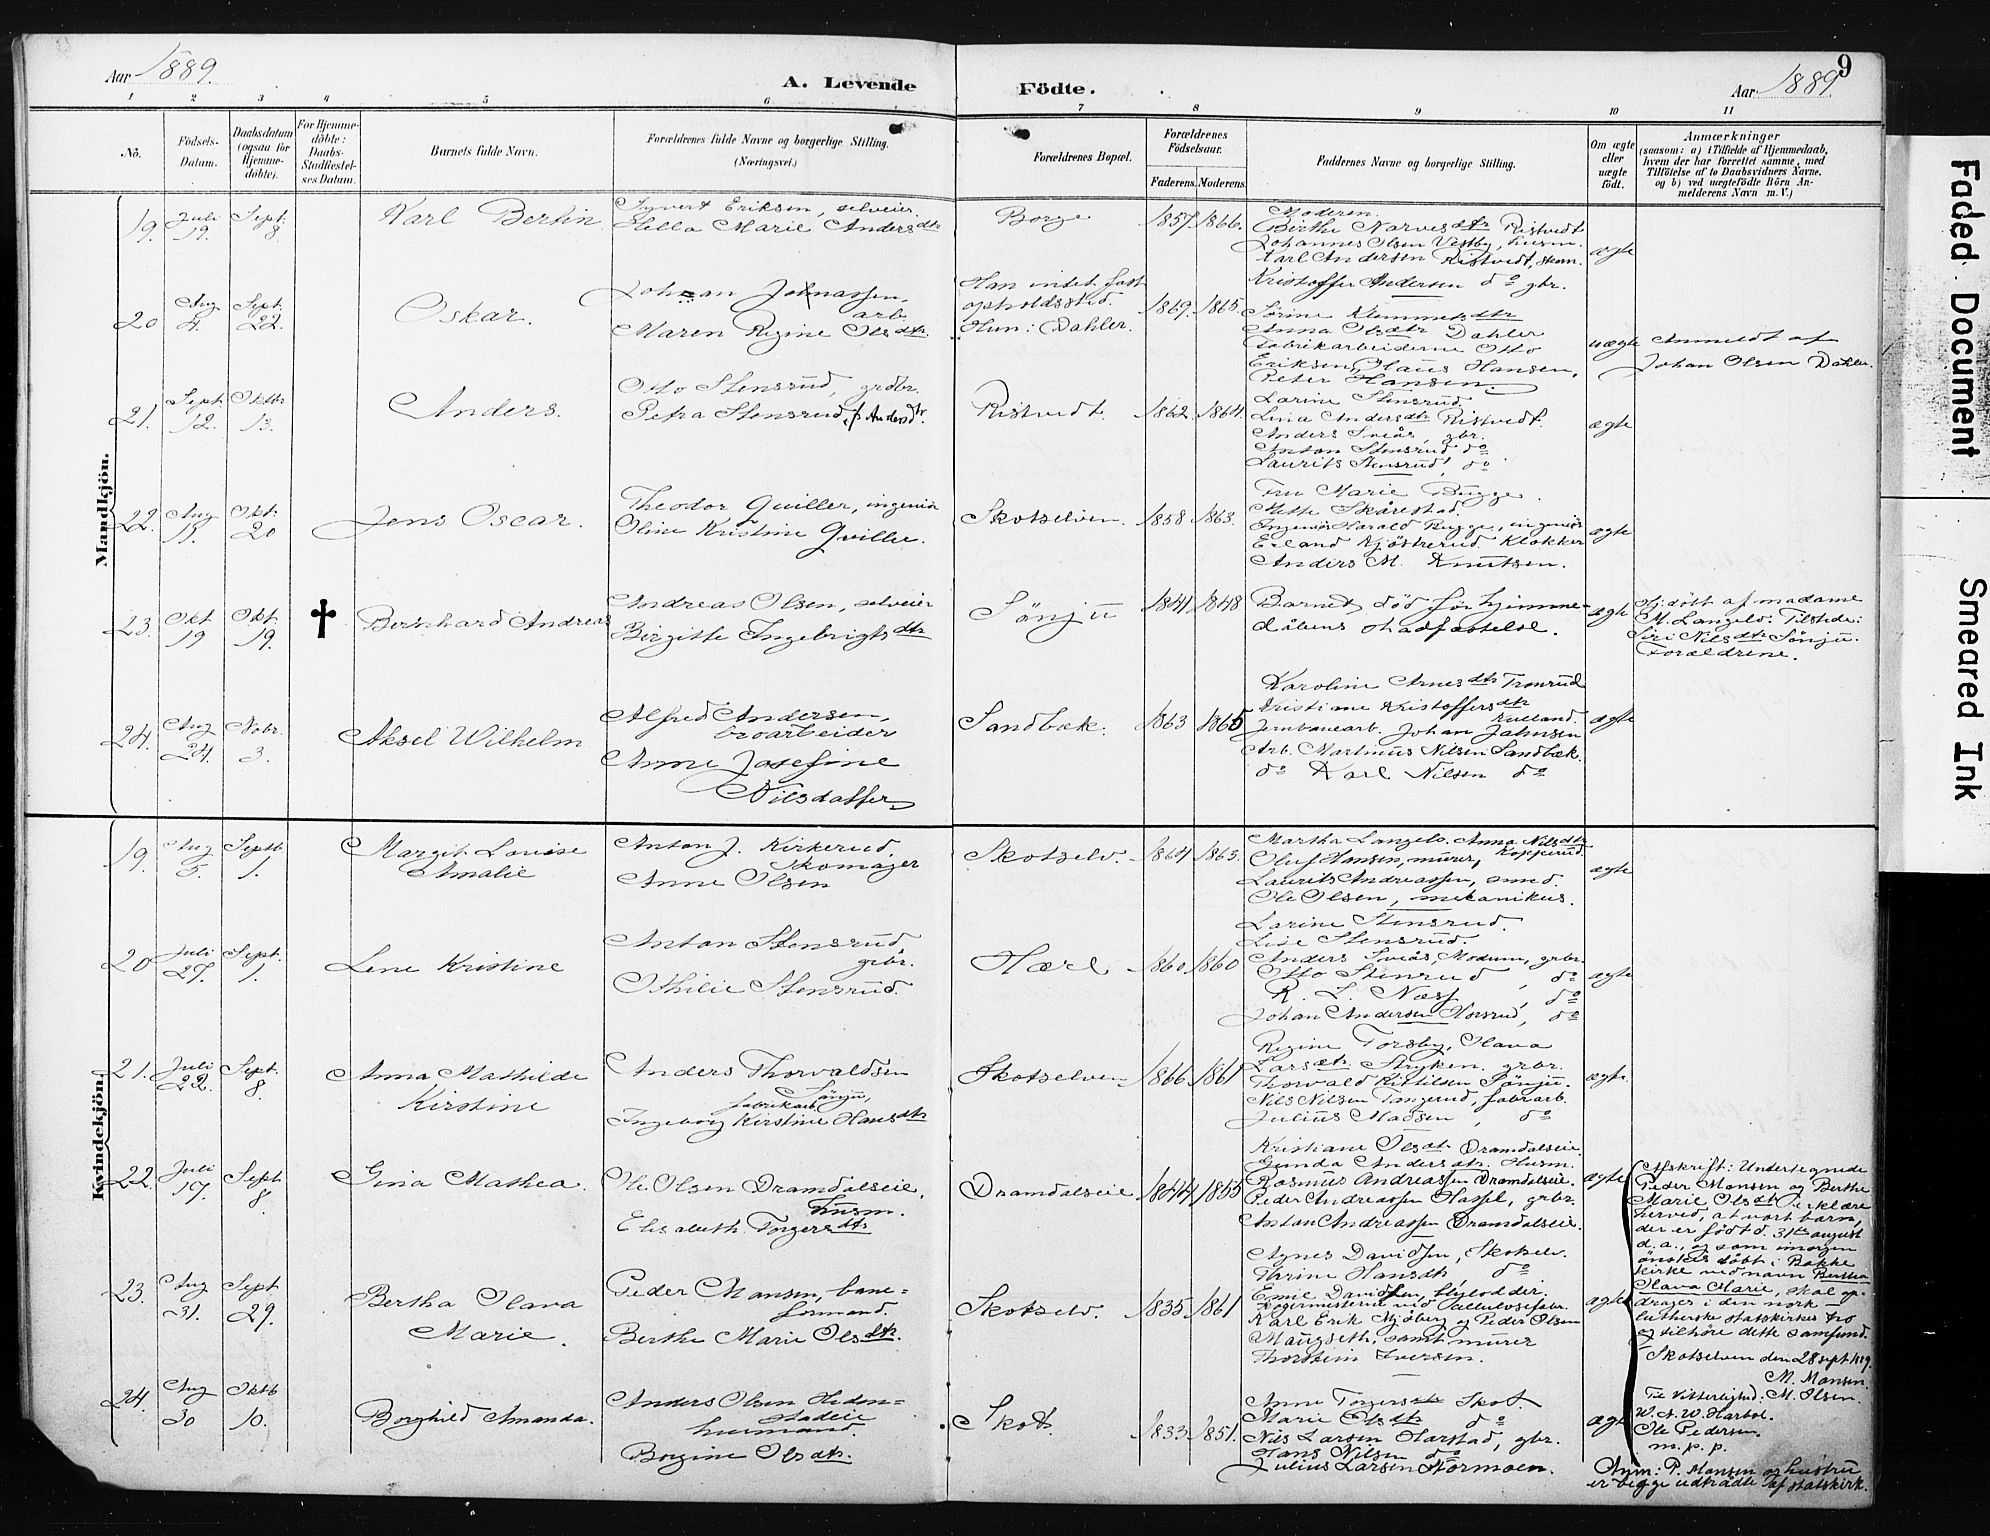 Aar 1889.
A. Levende
Födte.
Aar 1889.
9
1 2 3 4 5 6 7 8 9 10 11
No.
Födsels-
Datum.
Daabsdatum
(ogsaa for
Hjemme-
döbte).
For Hjemme-
döbte:
Daabs-
Stadfæstel-
ses Datum.
Barnets fulde Navn.
Forældrenes fulde Navne og borgerlige Stilling.
(Næringsvei.)
Forældrenes Bopæl.
Forældrenes
Födselsaar.
Faderens. Moderens.
Faddernes Navne og borgerlige Stilling.
Om ægte
eller
uægte
födt.
Anmærkninger
(saasom: a) i Tilfælde af Hjemmedaab,
hvem der har forrettet samme, med
Tilföielse af to Daabsvidners Navne,
og b) ved uægtefödte Börn An-
melderens Navn m. V.)
Mandkjön.
19.
Juli
19.
Sept.
8.
Karl Bertin
Syvert Eriksen, selveier
Marie Andersdtr
Borge
1857. 1866.
Moderen.
Birthe Narvesdtr Ristvedt
Johannes Olsen Vestby, husm.
Karl Andersen Ristvedt, skom.
Kristoffer Andersen do gbr.
ægte
20
Aug
4.
Sept.
22.
Oskar.
Johan Johnassen,
arb.
Maren Regine Olsdtr
Han intet fast
opholdssted.
Hun: Dahler.
1869. 1865.
Sørine Klemmetsdtr
Anna Olsdtr Dahler
Fabrikarbeiderne Otto
Eriksen, Olaus Hansen,
Peter Hansen.
uægte
Anmeldt af
Johan Olsen Dahler.
21.
Sept.
12.
Oktbr
13.
Anders.
Otto Stensrud, grdbr.
Petra Stensrud, f. Andersd.
Ristvedt.
1862. 1864.
Larine Stensrud.
Lina Andersdtr Ristvedt.
Anders Sveås, gbr.
Anton Stensrud do
Laurits Stensrud, do
ægte
22.
Aug
11.
Okt.
20
Jens Oscar.
Theodor Quiller, ingeniør
Oline Kristine Quiller.
Skotselven.
1858 1863.
Fru Marie Bugge.
Mette Skårestad
Ingeniør Harald Bugge, ingeniør
Erland Kjøstrerud Klokker
Anders M. Knutsen.
ægte
23.
Okt
19
Okt.
19.
†
Bernhard Andreas
Andreas Olsen, selveier
Birgitte Ingebrigtsdtr
Sönju
1841. 1848
Barnet död för hjemme-
dåbens stadfæstelse.
ægte
Hj: döbt af madame
M. Langelo. Tilstede:
Siri Nilsdtr Sönju.
Forældrene.
24.
Aug
24.
Nobr.
3.
Aksel Wilhelm
Alfred Andersen,
broarbeider
Anne Josefine
Nilsdatter
Sandbæk.
1863 1865
Karoline Arnesdtr Tronrud
Kristiane Kristoffersdtr
Rulland.
Jernbanearb. Johan Jahnsen
Arb. Martinus Nilsen Sandbæk.
do Karl Nilsen do
ægte
Kvindekjön.
19.
Aug
5.
Septb
1.
Margit Louise
Amalie
Anton J. Kirkerud,
Skomager
Anne Olsen
Skotselv.
1864 1863.
Martha Langelo. Anna Nilsdtr
Kopperud.
Oluf Hansen, murer,
Laurits Andreassen, smed.
Ole Olsen, mekanikus.
ægte
20
Juli
27.
Sept.
1.
Lene Kristine
Anton Stensrud,
grbr.
Othilie Stensrud.
Hærl
1860. 1860
Larine Stensrud.
Lise Stensrud.
Anders Sveås, Modum, grbr.
Otto Stenrud, do
R. L. Næss, do
Johan Andersen Horsrud, do
ægte
21.
Juli
22.
Sept.
8.
Anna Mathilde
Kirstine
Anders Thorvaldsen
Sönju,
fabrikarb.
Ingeborg Kirstine Hansdtr
Skotselven
1866 1861
Regine Torsby, Olava
Larsdtr Stryken, grbr.
Thorvald Kittilsen Sönju.
Nils Nilsen Tangerud, fabrarb.
Julius Madsen, do
ægte.
22.
Juli
17.
Sept.
8.
Gina Mathea.
Ole Olsen Dramdalseie,
husm.
Elisabeth Torgersdtr
Dramdalseie
1844 1855
Kristiane Olsdt. Dramdalseie
Gunda Andersdtr. Husm.
Rasmus Andreassen Dramdalseie.
Peder Andreassen Hassel, grbr.
Anton Andreassen Dramdalseie.
ægte
23.
Aug
31.
Sept
29.
Bertha Olava
Marie.
Peder Mansen, bane=
formand.
Berthe Marie Olsdtr.
Skotselv.
1835 1861
Agnes Davidsen, Skotselv.
Thrine Hansdt. do
Emil Davidsen,
Karl Erik Mjöberg og Peder Olsen
Maugseth, samt murer
Thorstein Iversen.
ægte
Afskrift: Undertegnede
Peder Mansen og Berthe
Marie Olsdtr erklære
herved, at vort barn,
der er född. 31te august
d. a., og som imorgen
önskes döbt i Bakke
kirke ved navn Bertha
Olava Marie, skal op-
drages i den norsk-
lutherske statskirkes tro
og tilhöre dette samfund.
Skotselven den 28 sept 1889.
M. Mansen.
Til Vitterlighed: M. Olsen.
W. A. W. Harbol.
Ole Pedersen.
m. p. p.
Anm: P. Mansen og hustru
er begge udtrådte af statskirk.
24.
Aug
30
Oktb
10.
Borghild Amanda.
Anders Olsen Heden=
stadeie
husmand.
Borgine Olsdtr.
Skott.
1833 1851.
Anne Torgersdtr Skot.
Marie Olsdtr do
Nils Larsen Harstad, gbr.
Hans Nilsen do
Julius Larsen Stormoen.
ægte
Faded Document
Smeared Ink